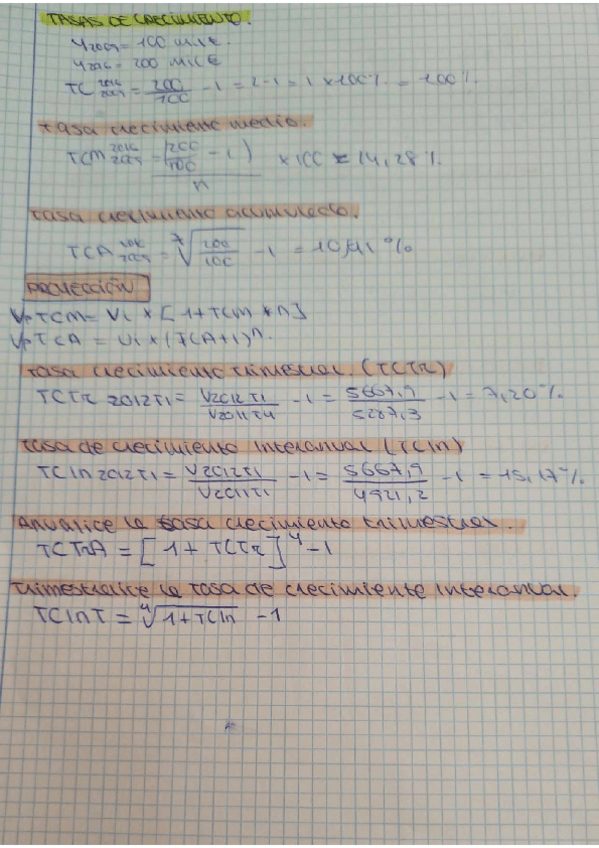 TASAS DE CRECIMIENTO.
Y2009 = 100 mill €.
Y2016 = 200 mill €
TC 2016 2009 = 200/100 - 1 = 2 - 1 = 1 x 100% = 100%.
tasa crecimiento medio.
TCM 2016 2009 = (200/100 - 1)/n x 100 = 14,28%.
tasa crecimiento acumulado.
TCA 2016 2009 = ⁷√(200/100) - 1 = 10,41%
PROYECCIÓN
Vp TCM = Vi x [1 + TCM x n]
Vp TCA = Vi x (TCA+1)ⁿ.
tasa crecimiento trimestral (TCTr)
TCTr 2012T1 = V2012T1/V2011T4 - 1 = 5667,9/5287,3 - 1 = 7,20%.
tasa de crecimiento interanual (TCIn)
TCIn 2012T1 = V2012T1/V2011T1 - 1 = 5667,9/4921,2 - 1 = 15,17%.
Anualice la tasa crecimiento trimestral.
TCTrA = [1 + TCTr]⁴ - 1
trimestralice la tasa de crecimiento interanual.
TCInT = ⁴√(1+TCIn) - 1